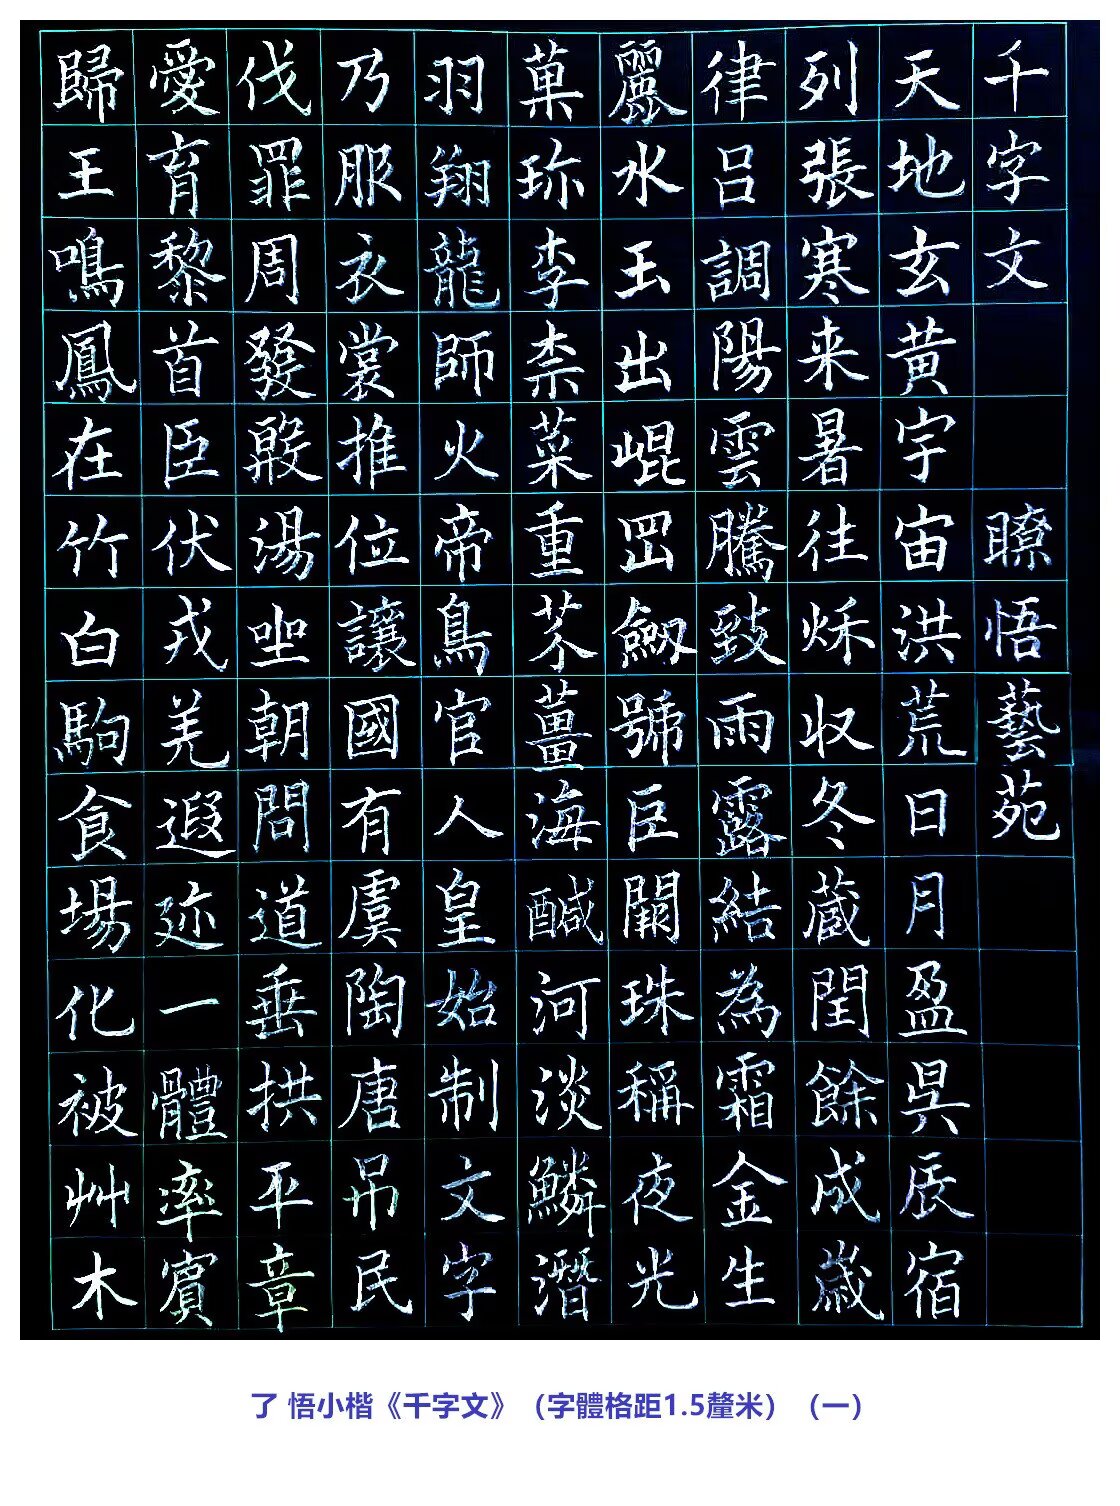 千字文
瞭悟藝苑
天地玄黄宇宙洪荒日月盈昃辰宿
列張寒来暑徃秌収冬蔵閏餘成歲
律吕調陽雲騰致雨露結為霜金生
麗水玉出崐岡劒號巨闕珠稱夜光
菓珎李柰菜重芥薑海醎河淡鱗潛
羽翔龍師火帝鳥官人皇始制文字
乃服衣裳推位讓國有虞陶唐吊民
伐罪周發殷湯坐朝問道垂拱平章
愛育黎首臣伏戎羌遐迩一體率賓
歸王鳴鳳在竹白駒食場化被艸木
了 悟小楷《千字文》（字體格距1.5釐米）（一）